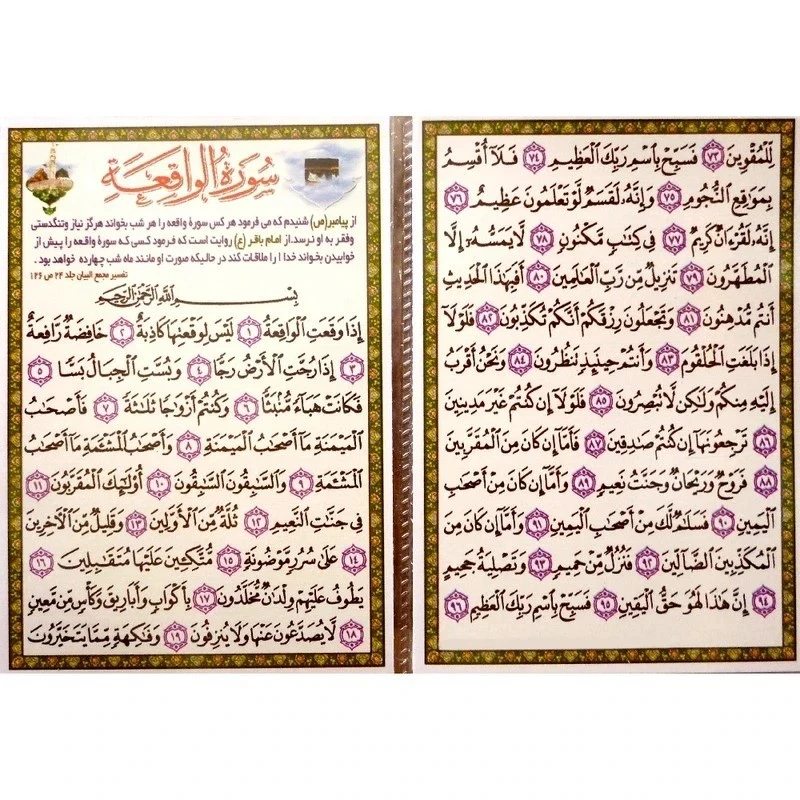 سُورَةُ الْوَاقِعَةِ
از پیامبر(ص) شنیدم که می فرمود هر کس سورۀ واقعه را هر شب بخواند هرگز نیاز وتنگدستی
وفقر به او نرسد.از امام باقر (ع) روایت است که فرمود کسی که سورۀ واقعه را پیش از
خوابیدن بخواند خدا را ملاقات کند در حالیکه صورت او مانند ماه شب چهارده خواهد بود .
تفسیر مجمع البیان جلد ۲۴ ص ۱۲۶
بِسْمِ اللَّهِ الرَّحْمَٰنِ الرَّحِيمِ
إِذَا وَقَعَتِ الْوَاقِعَةُ ١ لَيْسَ لِوَقْعَتِهَا كَاذِبَةٌ ٢ خَافِضَةٌ رَافِعَةٌ
٣ إِذَا رُجَّتِ الْأَرْضُ رَجًّا ٤ وَبُسَّتِ الْجِبَالُ بَسًّا ٥
فَكَانَتْ هَبَاءً مُنْبَثًّا ٦ وَكُنْتُمْ أَزْوَاجًا ثَلَاثَةً ٧ فَأَصْحَابُ
الْمَيْمَنَةِ مَا أَصْحَابُ الْمَيْمَنَةِ ٨ وَأَصْحَابُ الْمَشْئَمَةِ مَا أَصْحَابُ
الْمَشْئَمَةِ ٩ وَالسَّابِقُونَ السَّابِقُونَ ١٠ أُولَٰئِكَ الْمُقَرَّبُونَ ١١
فِي جَنَّاتِ النَّعِيمِ ١٢ ثُلَّةٌ مِنَ الْأَوَّلِينَ ١٣ وَقَلِيلٌ مِنَ الْآخِرِينَ
١٤ عَلَىٰ سُرُرٍ مَوْضُونَةٍ ١٥ مُتَّكِئِينَ عَلَيْهَا مُتَقَابِلِينَ ١٦
يَطُوفُ عَلَيْهِمْ وِلْدَانٌ مُخَلَّدُونَ ١٧ بِأَكْوَابٍ وَأَبَارِيقَ وَكَأْسٍ مِنْ مَعِينٍ
١٨ لَا يُصَدَّعُونَ عَنْهَا وَلَا يُنْزِفُونَ ١٩ وَفَاكِهَةٍ مِمَّا يَتَخَيَّرُونَ
لِلْمُقْوِينَ ٧٣ فَسَبِّحْ بِاسْمِ رَبِّكَ الْعَظِيمِ ٧٤ فَلَا أُقْسِمُ
بِمَوَاقِعِ النُّجُومِ ٧٥ وَإِنَّهُ لَقَسَمٌ لَوْ تَعْلَمُونَ عَظِيمٌ ٧٦
إِنَّهُ لَقُرْآنٌ كَرِيمٌ ٧٧ فِي كِتَابٍ مَكْنُونٍ ٧٨ لَا يَمَسُّهُ إِلَّا
الْمُطَهَّرُونَ ٧٩ تَنْزِيلٌ مِنْ رَبِّ الْعَالَمِينَ ٨٠ أَفَبِهَٰذَا الْحَدِيثِ
أَنْتُمْ مُدْهِنُونَ ٨١ وَتَجْعَلُونَ رِزْقَكُمْ أَنَّكُمْ تُكَذِّبُونَ ٨٢ فَلَوْلَا
إِذَا بَلَغَتِ الْحُلْقُومَ ٨٣ وَأَنْتُمْ حِينَئِذٍ تَنْظُرُونَ ٨٤ وَنَحْنُ أَقْرَبُ
إِلَيْهِ مِنْكُمْ وَلَٰكِنْ لَا تُبْصِرُونَ ٨٥ فَلَوْلَا إِنْ كُنْتُمْ غَيْرَ مَدِينِينَ
٨٦ تَرْجِعُونَهَا إِنْ كُنْتُمْ صَادِقِينَ ٨٧ فَأَمَّا إِنْ كَانَ مِنَ الْمُقَرَّبِينَ
٨٨ فَرَوْحٌ وَرَيْحَانٌ وَجَنَّتُ نَعِيمٍ ٨٩ وَأَمَّا إِنْ كَانَ مِنْ أَصْحَابِ
الْيَمِينِ ٩٠ فَسَلَامٌ لَكَ مِنْ أَصْحَابِ الْيَمِينِ ٩١ وَأَمَّا إِنْ كَانَ مِنَ
الْمُكَذِّبِينَ الضَّالِّينَ ٩٢ فَنُزُلٌ مِنْ حَمِيمٍ ٩٣ وَتَصْلِيَةُ جَحِيمٍ
٩٤ إِنَّ هَٰذَا لَهُوَ حَقُّ الْيَقِينِ ٩٥ فَسَبِّحْ بِاسْمِ رَبِّكَ الْعَظِيمِ ٩٦